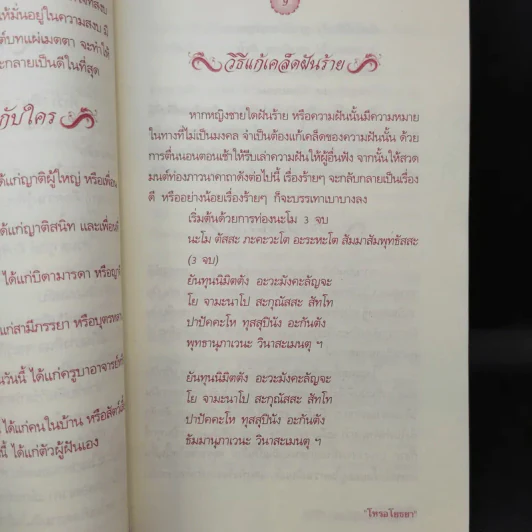 ให้มั่นอยู่ในความสงบ มี
บทแผ่เมตตา จะทำให้
กลายเป็นดีในที่สุด
กับใคร
ได้แก่ญาติผู้ใหญ่ หรือเพื่อน
ได้แก่ญาติสนิท และเพื่อน
ได้แก่บิดามารดา หรือญา
แก่สามีภรรยา หรือบุตร
วันนี้ ได้แก่ครูบาอาจารย์
ได้แก่คนในบ้าน หรือสัตว์
นี้ ได้แก่ตัวผู้ฝันเอง
9
วิธีแก้เคล็ดฝันร้าย
หากหญิงชายใดฝันร้าย หรือความฝันนั้นมีความหมาย
ในทางที่ไม่เป็นมงคล จำเป็นต้องแก้เคล็ดของความฝันนั้น ด้วย
การตื่นนอนตอนเช้าให้รีบเล่าความฝันให้ผู้อื่นฟัง จากนั้นให้สวด
มนต์ท่องภาวนาคาถาดังต่อไปนี้ เรื่องร้ายๆ จะกลับกลายเป็นเรื่อง
ดี หรืออย่างน้อยเรื่องร้ายๆ ก็จะบรรเทาเบาบางลง
เริ่มต้นด้วยการท่องนะโม 3 จบ
นะโม ตัสสะ ภะคะวะโต อะระหะโต สัมมาสัมพุทธัสสะ
(3 จบ)
ยันทุนนิมิตตัง อะวะมังคะลัญจะ
โย จามะนาโป สะกุณัสสะ สัทโท
ปาปัคคะโห ทุสสุปินัง อะกันตัง
พุทธานุภาเวนะ วินาสะเมนตุ ฯ
ยันทุนนิมิตตัง อะวะมังคะลัญจะ
โย จามะนาโป สะกุณัสสะ สัทโท
ปาปัคคะโห ทุสสุปินัง อะกันตัง
ธัมมานุภาเวนะ วินาสะเมนตุ ฯ
"โหรอโยธยา"